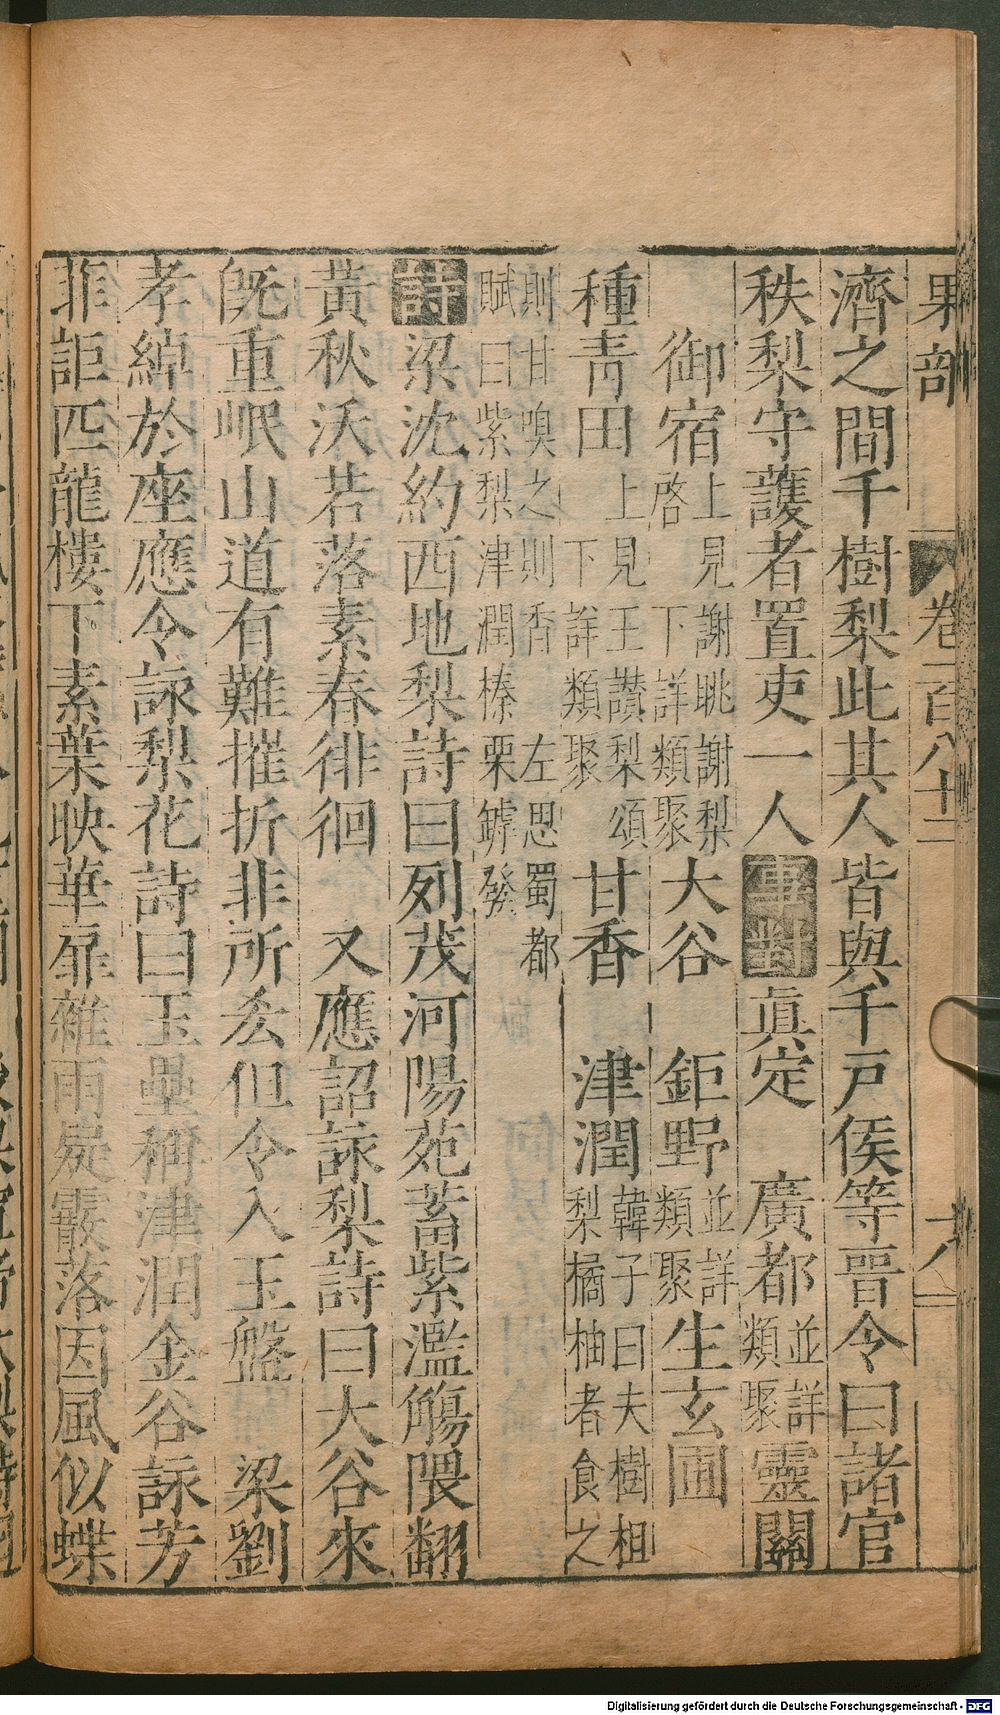 果部 卷一百八十一 六
濟之間千樹梨此其人皆與千戸侯等晉令曰諸官
秩梨守護者置吏一人事對眞定 廣都並詳類聚靈關
御宿上見謝眺謝梨啓下詳類聚大谷 鉅野並詳類聚生玄圃
種青田上見王讚梨頌下詳類聚甘香 津潤韓子曰夫樹柤梨橘柚者食之
則甘嗅之則香 左思蜀都賦曰紫梨津潤榛栗罅發
詩梁沈約西地梨詩曰列茂河陽苑蓄紫濫觴隈翻
黃秋沃若落素春徘徊 又應詔詠梨詩曰大谷來
旣重岷山道有難摧折非所恡但令入玉盤 梁劉
孝綽於座應令詠梨花詩曰玉壘稱津潤金谷詠芳
菲詎匹龍樓下素葉映華扉雜雨疑霰落因風似蝶
Digitalisierung gefördert durch die Deutsche Forschungsgemeinschaft - DFG